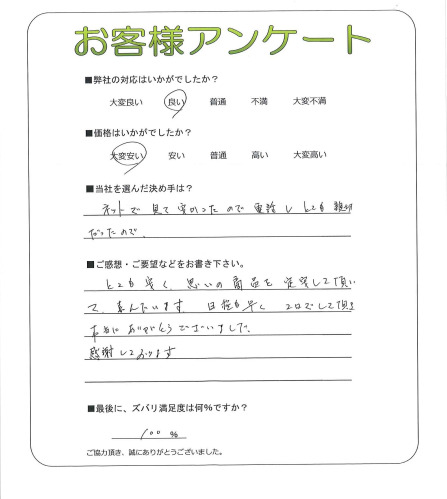 お客様アンケート
■弊社の対応はいかがでしたか？
大変良い 良い 普通 不満 大変不満
■価格はいかがでしたか？
大変安い 安い 普通 高い 大変高い
■当社を選んだ決め手は？
ネットで見て安かったので電話しとても親切
だったので、
■ご感想・ご要望などをお書き下さい。
とても安く、思いの商品を設置して頂い
て、喜んでいます。日程も早く2日でして頂き
本当にありがとうございました。
感謝しております
■最後に、ズバリ満足度は何％ですか？
100％
ご協力頂き、誠にありがとうございました。